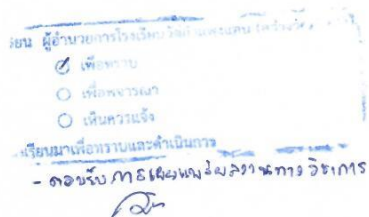 เรียน ผู้อำนวยการโรงเรียนวัด
เพื่อทราบ
เพื่อพิจารณา
เห็นควรแจ้ง
เรียนมาเพื่อทราบและดำเนินการ
- ตอบรับการเผยแพร่ผลงานทางวิชาการ